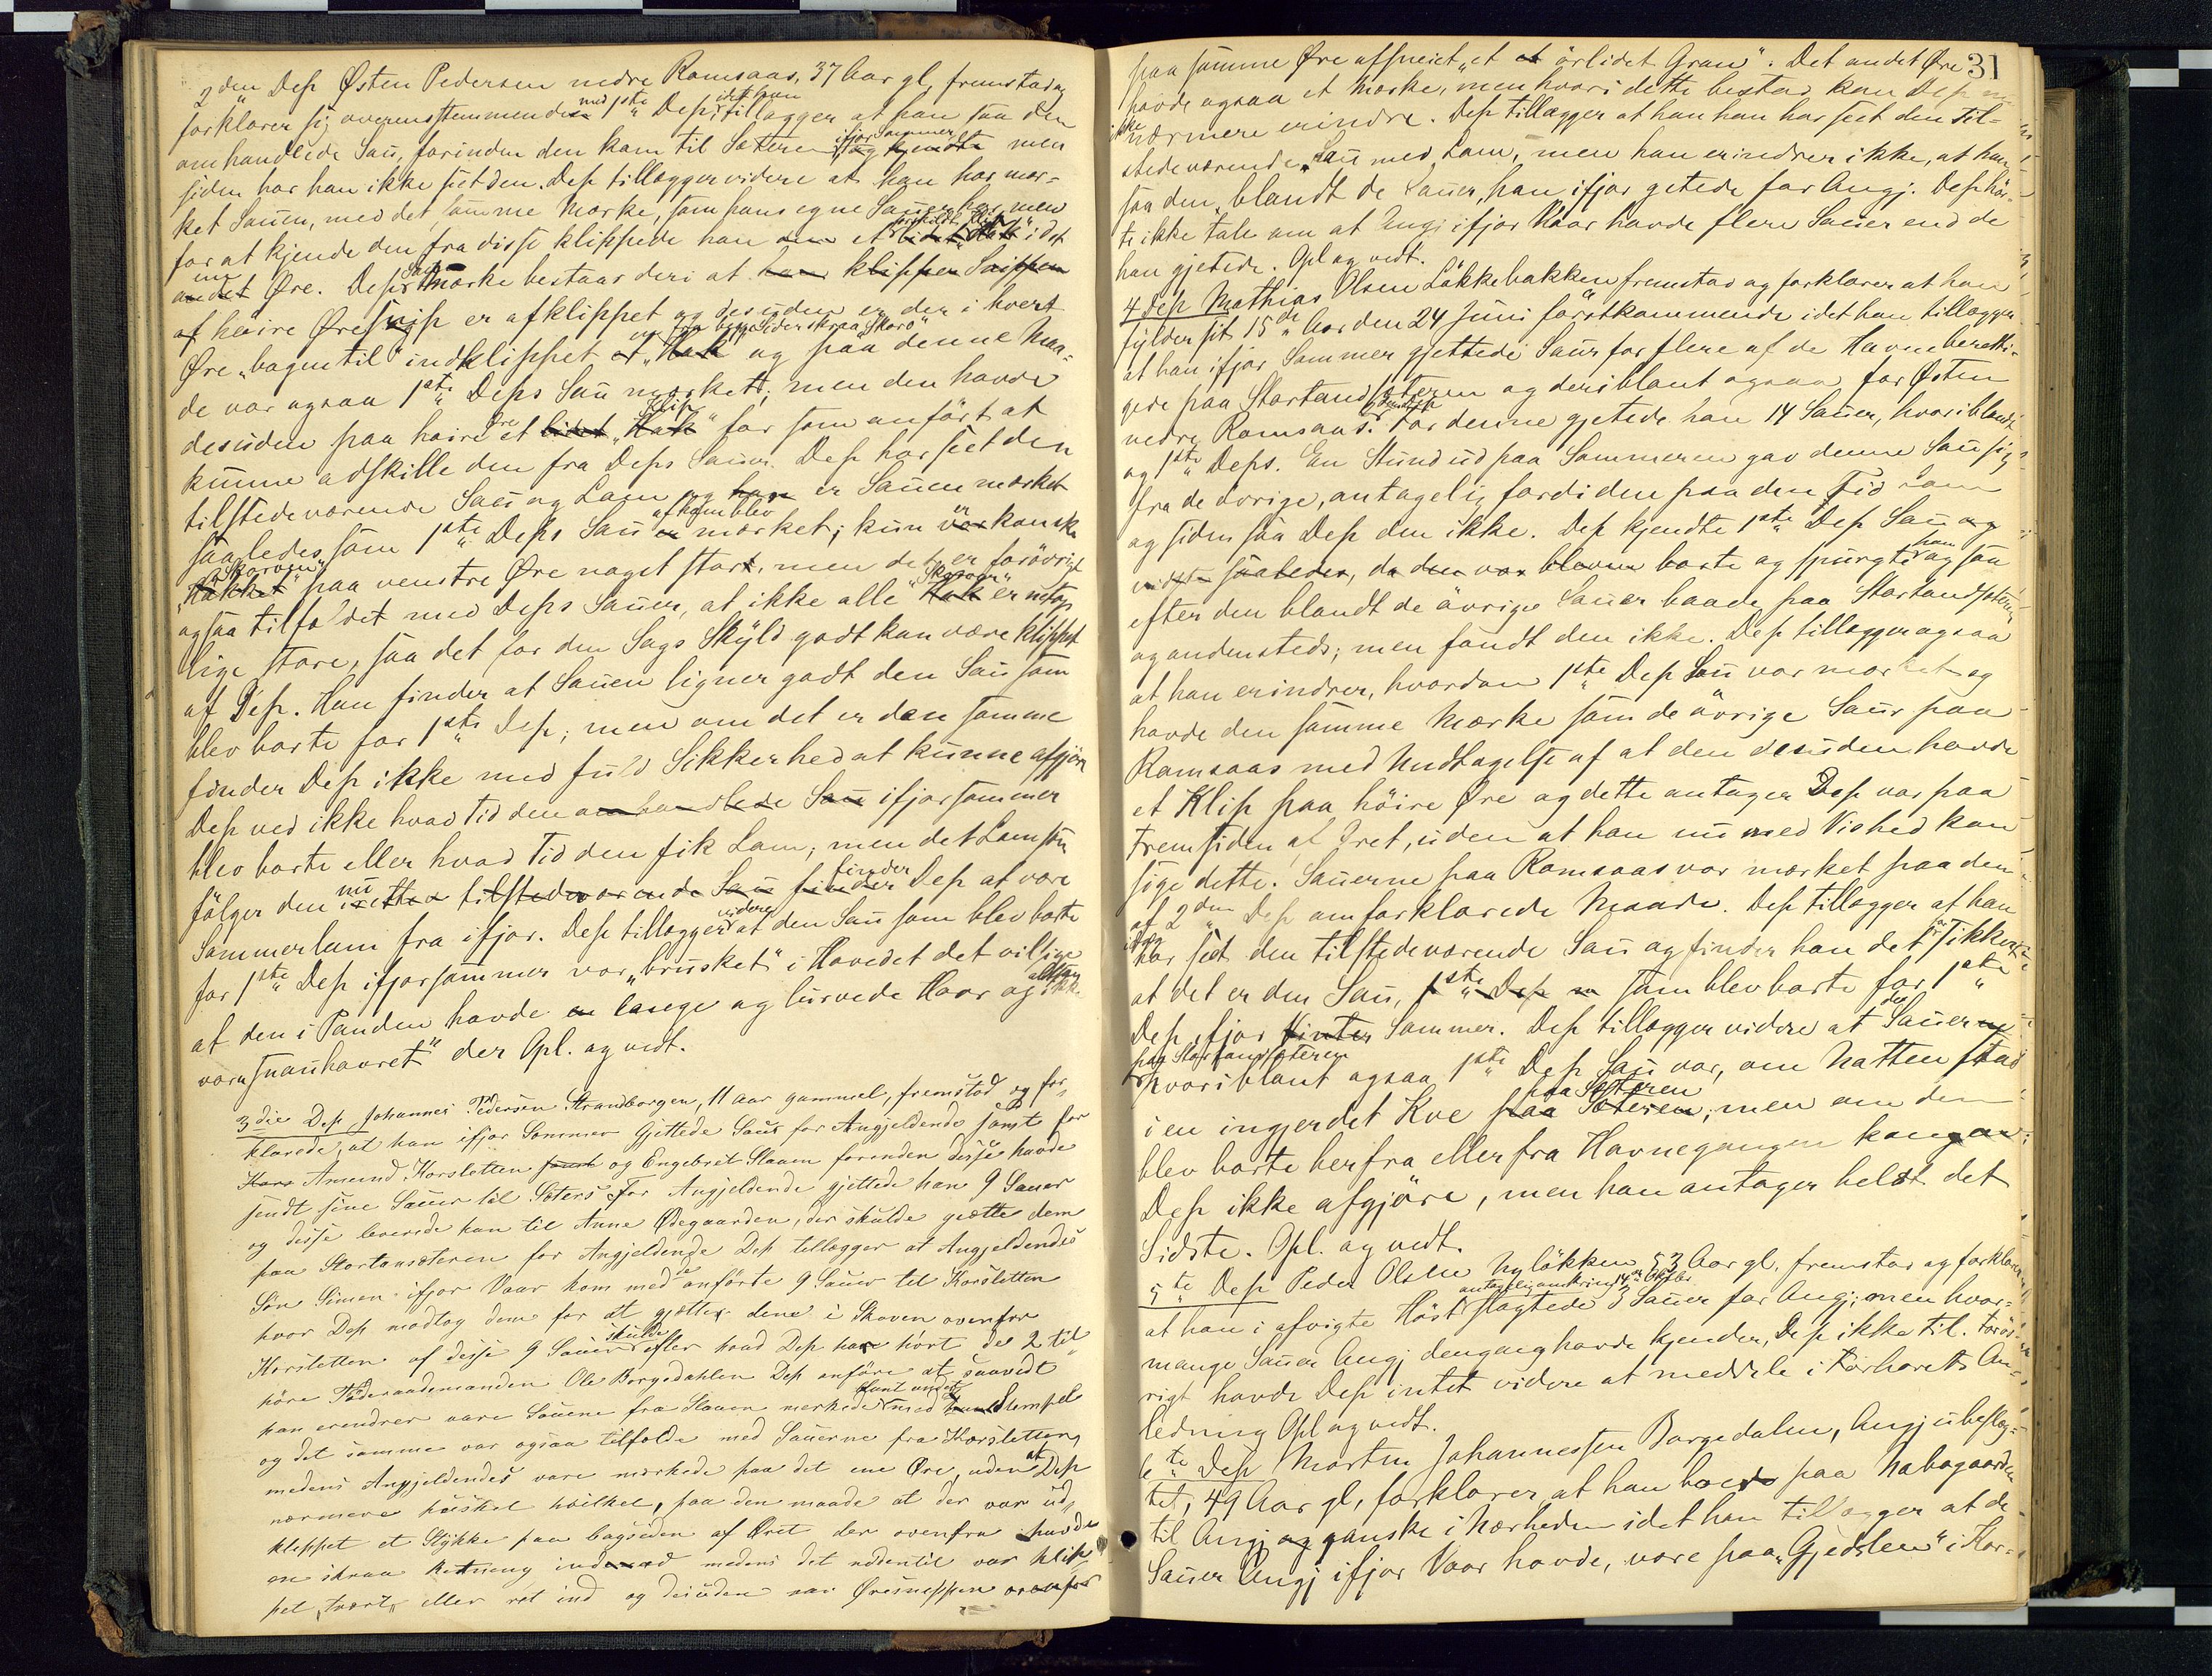 2den Dep Østen Pedersen nedre Ramsaas, 37 Aar gl, fremstod og
forklarer sig overensstemmende med 1ste Dep, idet han tillægger at han saa den
omhandlede Sau, forinden den kom til Sæteren ifjor Sommer og kjendte men
siden har han ikke seet den. Dep tillægger videre at han har mær-
ket Sauen, med det samme Mærke, som hans egne Sauer har, men
for at kjende den fra disse klippede han den et lidet "Hak" i det
andet Øre. Deps Mærke bestaar deri at han klipper Snippen
af høire Øresnip er afklippet og desuden er der i hvert
Øre "bagentil" indklippet et "Hak" og paa denne Maa-
de var ogsaa 1ste Deps Sau mærket, men den havde
desuden paa høire Øre et lidet "Hak" Klip for som anført at
kunne adskille den fra Deps Sauer. Dep har seet den
tilstedeværende Sau og Lam og han er Sauen mærket
saaledes som 1ste Deps Sau af ham blev mærket; kun var kanske
"Hakket" "Skorven" paa venstre Øre noget stort, men det er forøvrigt
ogsaa tilfældet med Deps Sauer, at ikke alle "Hak" er nøiag-
lige store, saa det for den Sags Skyld godt kan være klippet
af Dep. Han finder at Sauen ligner godt den Sau som
blev borte for 1ste Dep; men om det er den samme
finder Dep ikke med fuld Sikkerhed at kunne afgjøre
Dep ved ikke hvad Tid den omhandlede Sau ifjor sommer
blev borte eller hvad Tid den fik Lam; men det Lam som
følger den nu i Retten tilstedeværende Sau finder Dep at være
Sommerlam fra ifjor. Dep tillægger videre at den Sau som blev borte
for 1ste Dep ifjor sommer var "brusket" i Hovedet det vil sige
at den i Panden havde en lasege og lurvede Haar og altsaa ikke
var "snauhavret" der Opl. og vedt.
3die Dep Johannes Pedersen Strandborgen, 11 aar gammel, fremstod og for-
klarede, at han ifjor Sommer Gjettede Saus for Angjeldende samt for
Hans Amund Korsletten samt og Engebret Slaaen forinden disse havde
sendt sine Sauer til Sæters. For Angjeldende gjettede han 9 Sauer
og disse leverede han til Anne Ødegaarden, der skulde gjætte dem
paa Stortansæteren for Angjeldende Dep tillægger at Angjeldendes
Søn Simen ifjor Vaar kom med de anførte 9 Sauer til Korsletten
hvor Dep modtog dem for at gjætte dem i Skoven ovenfor
Korsletten af disse 9 Sauer skulde efter hvad Dep har hørt de 2 til-
høre Føderaadsmanden Ole Borgedahlen Dep anføre at saavidt
han erindrer vare Sauene fra Slaaen merkede med Stempel
og det samme var ogsaa tilfælde med Sauerne fra Korsletten,
medens Angjeldendes vare merkede paa det ene Øre, uden at Dep
nærmere husket hvilket, paa den maade at der var ud-
klippet et Stykke paa bagsiden af Øret der ovenfra havde
en skraa Retning indenad medens det nedentil var klip-
pet "tvært" eller ret ind og desuden var Øresnippen ovenfor
31
paa samme Øre afsneiet "et ørlidet Gran". Det andet Øre
havde ogsaa et Mærke, men hvori dette bestod kan Dep nu
ikke nærmere erindre. Dep tillægger at han har seet den til-
stedeværende Sau med Lam, men han erindrer ikke, at han
saa den blandt de Sauer, han ifjor gjetede for Angj. Dep hør-
te ikke tale om at Angj ifjor Vaar havde flere Sauer end de
han gjetede. Opl og vedt.
4 Dep Mathias Olsen Løkkebakken fremstod og forklarer at han
fylder sit 15de Aar den 24 Juni førstkommende idet han tillægger
at han ifjor Sommer gjettede Saus for flere af de Havneberetti-
gede paa Stortandsæteren og deriblant ogsaa for Østen
nedre Ramsaas. For denne gjetede han 14 Sauer, hvoriblandt
og 1ste Deps. En Stund ud paa Sommeren gav denne Sau sig
fra de øvrige, antagelig fordi den paa den Tid Lam
og siden saa Dep den ikke. Dep kjendte 1ste Dep Sau og
vidste saaledes, da den var bleven borte og spurgte ham og saa
efter den blandt de øvrige Sauer baade paa Stortandsæteren
og andensteds; men fandt den ikke. Dep tillægger ogsaa
at han erindrer, hvordan 1ste Dep Sau var mærket og
havde den samme Mærke som de øvrige Saus paa
Ramsaas med Undtagelse af at den desuden havde
et Klip paa høire Øre og dette antager Dep var paa
Fremsiden af Øret, uden at han nu med Vished kan
sige dette. Sauerne paa Ramsaas var mærket paa den
af 2den Dep omforklarede Maade. Dep tillægger at han
idag har seet den tilstedeværende Sau og finder han det er sikkert
at det er den Sau, 1ste Dep som blev borte for 1ste
Dep ifjor Vinter Sommer. Dep tillægger videre at de Sauerne
paa Stortandsæteren
hvoriblant ogsaa 1ste Dep Sau var, om Natten stod
i en ingjerdet Kve paa Sæteren, men om den
blev borte herfra eller fra Havnegangen kan
Dep ikke afgjøre, men han antager helst det
Sidste. Opl. og vedt.
5te Dep Peder Olsen Nyløkken 53 Aar gl. fremstod og forklarer
at han i afvigte Høst antagelig omkring 14de Oktbr slagtede 3 Sauer for Angj; men hvor-
mange Sauer Angj dengang havde kjender Dep ikke til. Forøv-
rigt havde Dep intet videre at meddele i Forhørets An-
ledning Opl og vedt.
6te Dep Morten Johannessen Borgedalen, Angj ubeslæg-
tet, 49 Aar gl, forklarer at han boede paa Nabogaarden
til Angj og ganske i Nærheden idet han tillægger at de
Sauer Angj ifjor Vaar havde, vare paa "Gjedslen" i Kor-